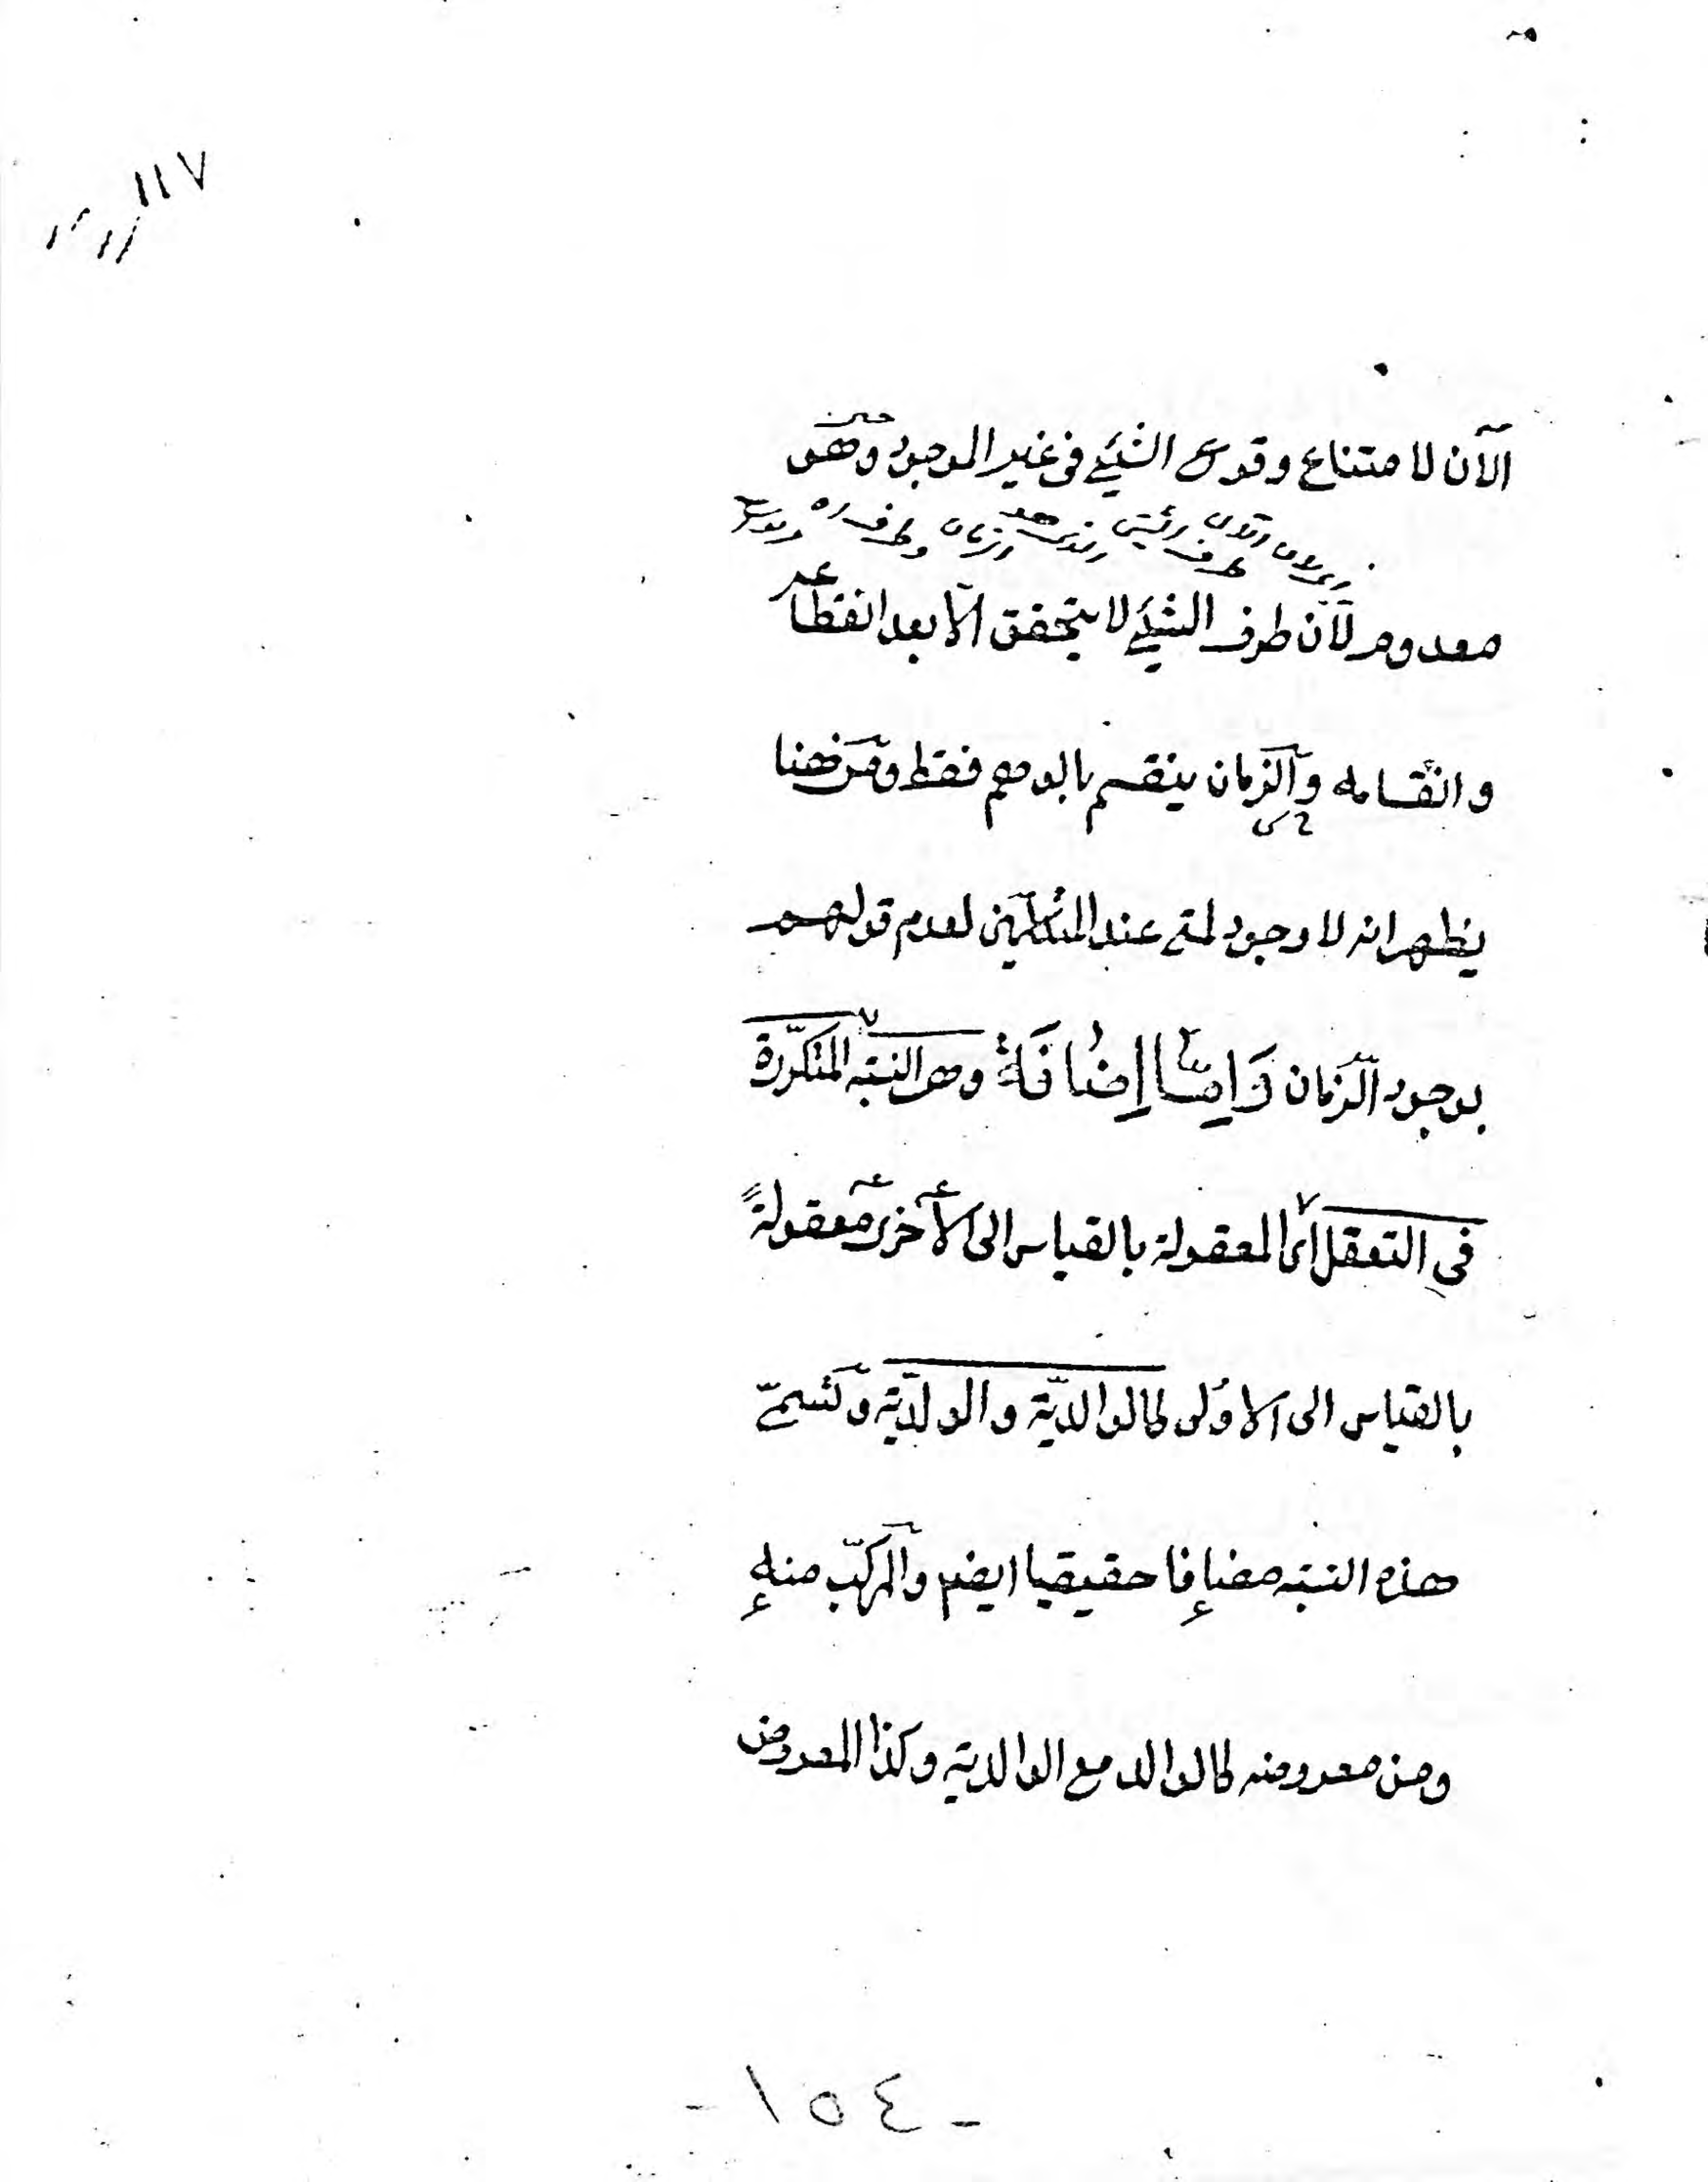 ١١٧
الآن لامتناع وقوع الشئ فى غير الموجود وهو
معدوم لأن طرف الشئ لا يتحقق الّا بعد انقطاعه
وانقسامه والزمان ينقسم بالوهم فقط ومن ههنا
يظهر انه لا وجود لمتى عند المتكلمين لعدم قولهم
بوجود الزمان وَاِمَّا اِضَافَةٌ وهى النسبة المتكرّرة
فى التعقل اى المعقولة بالقياس الى الأخرى معقولةً
بالقياس الى الاولى كالوالديّة والولديّة وتسمّى
هذه النسبة مضافا حقيقيا ايضا والمركّب منه
ومن معروضه كالوالد مع الوالدية وكذا المعروض
- ١٥٤ -